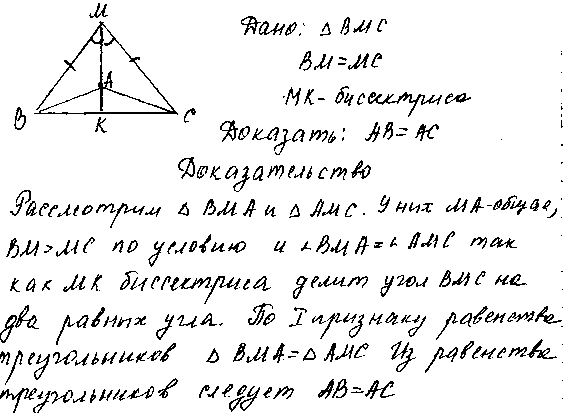 M
Дано: △ BMC
BM=MC
A
MK- биссектриса
B K C
Доказать: AB=AC
Доказательство
Рассмотрим △ BMA и △ AMC. У них MA-общая,
BM=MC по условию и ∠BMA=∠AMC так
как MK биссектриса делит угол BMC на
два равных угла. По I признаку равенства
треугольников △ BMA=△ AMC Из равенства
треугольников следует AB=AC